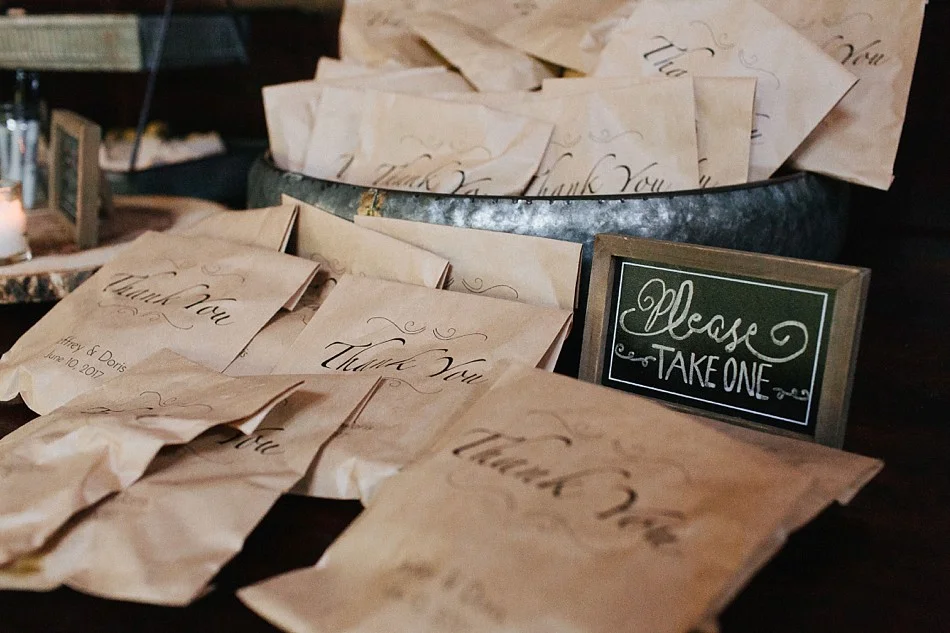 Thank You
You
Thank You
Thank You
Thank You
June 10, 2017
& Doris
Thank You
You
Thank You
Please
TAKE ONE